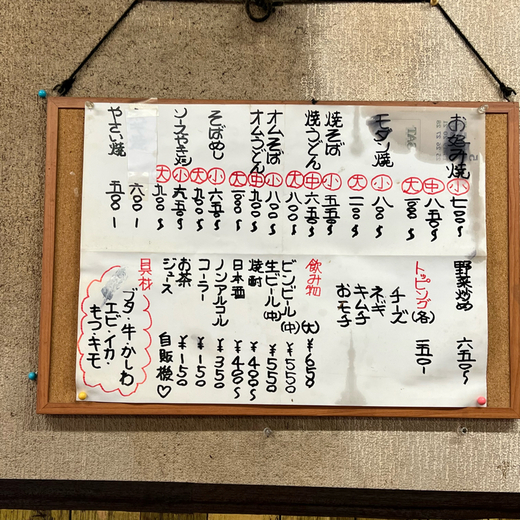 お好み焼 小 七〇〇〜
中 八五〇〜
大
モダン焼 小 八〇〇〜
大
焼そば 小 五五〇〜
焼うどん 中 六五〇〜
大 八〇〇〜
オムそば 小 八〇〇〜
オムうどん 中 九〇〇〜
大
そばめし 小 六五〇〜
大 九〇〇〜
ソースやきめし 小 六五〇〜
大 九〇〇〜
六〇〇-
やさい焼 五〇〇-
野菜炒め 六五〇〜
トッピング(各) 五〇-
チーズ
ネギ
キムチ
おモチ
飲み物
ビンビール(大) ¥650
(中) ¥550
生ビール(中) ¥550
焼酎 ¥400〜
日本酒 ¥400〜
ノンアルコール ¥350
コーラー ¥150
お茶 ¥150
ジュース 自販機♡
具材
ブタ・牛・かしわ
エビ・イカ・
もつ・キモ